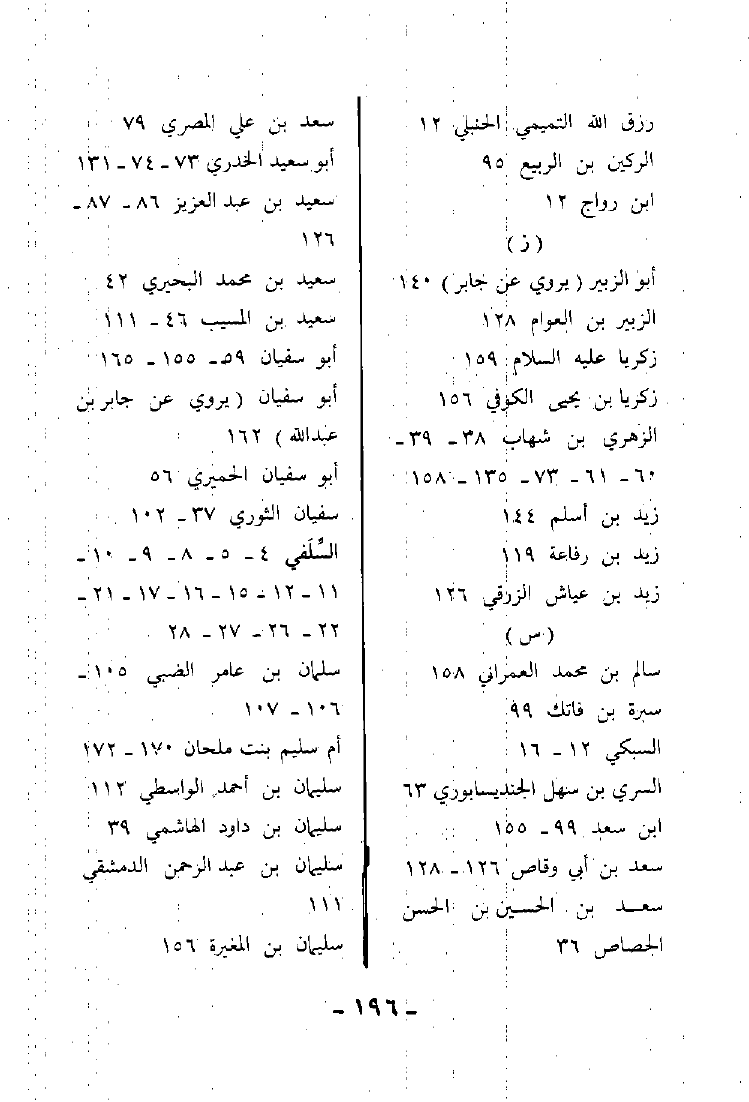 رزق الله التميمي الحنبلي ١٢
الركين بن الربيع ٩٥
ابن رواج ١٢
( ز )
أبو الزبير ( يروي عن جابر ) ١٤٠
الزبير بن العوام ١٢٨
زكريا عليه السلام ١٥٩
زكريا بن يحيى الكوفي ١٥٦
الزهري بن شهاب ٣٨ ـ ٣٩ ـ
٦٠ ـ ٦١ ـ ٧٣ ـ ١٣٥ ـ ١٥٨
زيد بن أسلم ١٤٤
زيد بن رفاعة ١١٩
زيد بن عياش الزرقي ١٢٦
( س )
سالم بن محمد العمراني ١٥٨
سبرة بن فاتك ٩٩
السبكي ١٢ ـ ١٦
السري بن سنهل الجنديسابوري ٦٣
ابن سعد ٩٩ ـ ١٥٥
سعد بن أبي وقاص ١٢٦ ـ ١٢٨
سعـد بن الحسين بن الحسن
الجصاص ٣٦
سعد بن علي المصري ٧٩
أبو سعيد الخدري ٧٣ ـ ٧٤ ـ ١٣١
سعيد بن عبد العزيز ٨٦ ـ ٨٧ ـ
١٢٦
سعيد بن محمد البحيري ٤٢
سعيد بن المسيب ٤٦ ـ ١١١
أبو سفيان ٥٩ ـ ١٥٥ ـ ١٦٥
أبو سفيان ( يروي عن جابر بن
عبدالله ) ١٦٢
أبو سفيان الحميري ٥٦
سفيان الثوري ٣٧ ـ ١٠٢
السِّلَفي ٤ ـ ٥ ـ ٨ ـ ٩ ـ ١٠ ـ
١١ ـ ١٢ ـ ١٥ ـ ١٦ ـ ١٧ ـ ٢١ ـ
٢٢ ـ ٢٦ ـ ٢٧ ـ ٢٨
سلمان بن عامر الضبي ١٠٥ ـ
١٠٦ ـ ١٠٧
أم سليم بنت ملحان ١٧٠ ـ ١٧٢
سليمان بن أحمد الواسطي ١١٢
سليمان بن داود الهاشمي ٣٩
سليمان بن عبد الرحمن الدمشقي
١١١
سليمان بن المغيرة ١٥٦
ـ ١٩٦ ـ